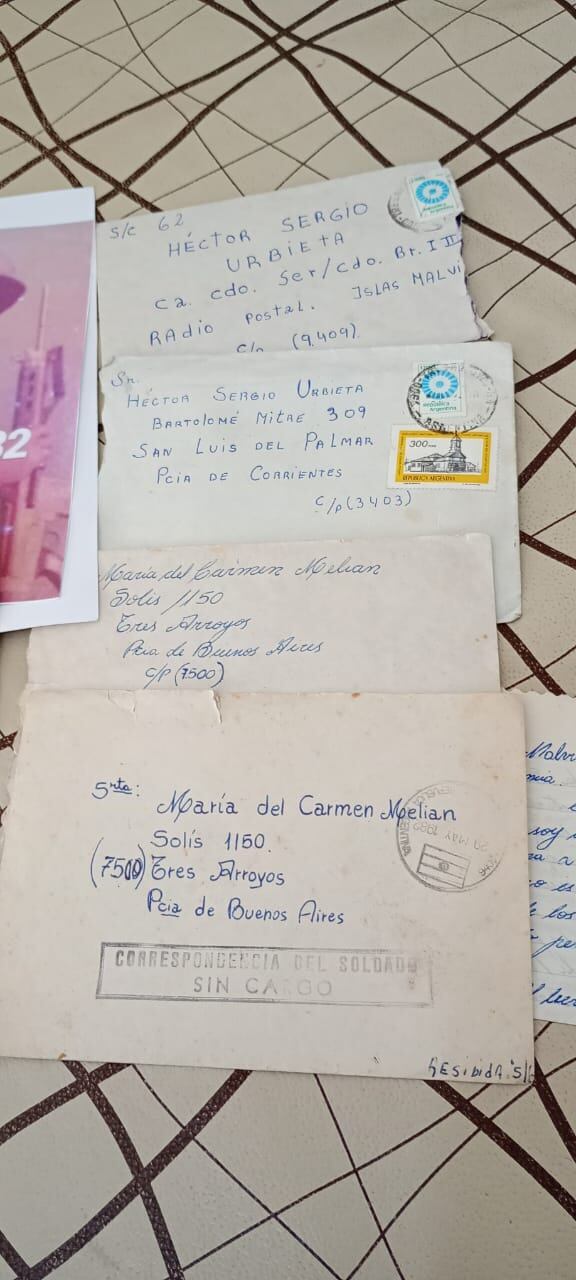 S/C 62
HÉCTOR SERGIO
URBIETA
Ca. cdo. Ser/cdo. Br. III
RADIO Postal. ISLAS MALVI
C/P (9.409)
República
Argentina
Sr.
HÉCTOR SERGIO URBIETA
BARTOLOMÉ MITRE 309
SAN LUIS DEL PALMAR
PCIA DE CORRIENTES
C/P (3403)
República
Argentina
300
REPUBLICA ARGENTINA
32
María del Carmen Melian
Solís 1150
Tres Arroyos
Pcia de Buenos Aires
C/P (7500)
Srta:
María del Carmen Melian
Solís 1150.
(7500) Tres Arroyos
Pcia de Buenos Aires
29 MAY 1982
CORRESPONDENCIA DEL SOLDADO
SIN CARGO
RESIBIDA S/
Malvi
soy
a a
o es
los
pe